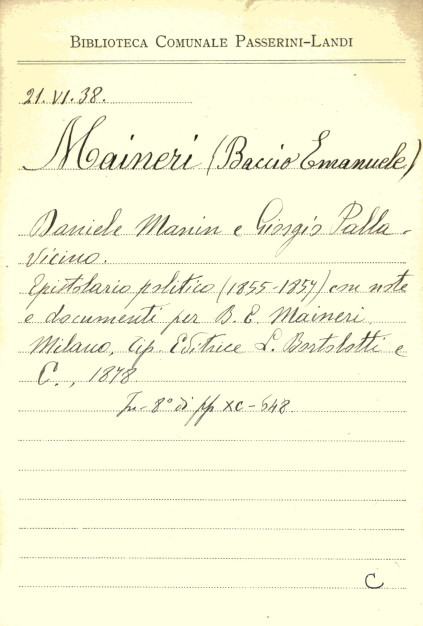 BIBLIOTECA COMUNALE PASSERINI-LANDI
21.VI.38.
Maineri (Baccio Emanuele)
Daniele Manin e Giorgio Palla-
vicino.
Epistolario politico (1855-1857) con note
e documenti per B. E. Maineri
Milano, tip. Editrice L. Bortolotti e
C., 1878
In-8° di pp XC-648
C